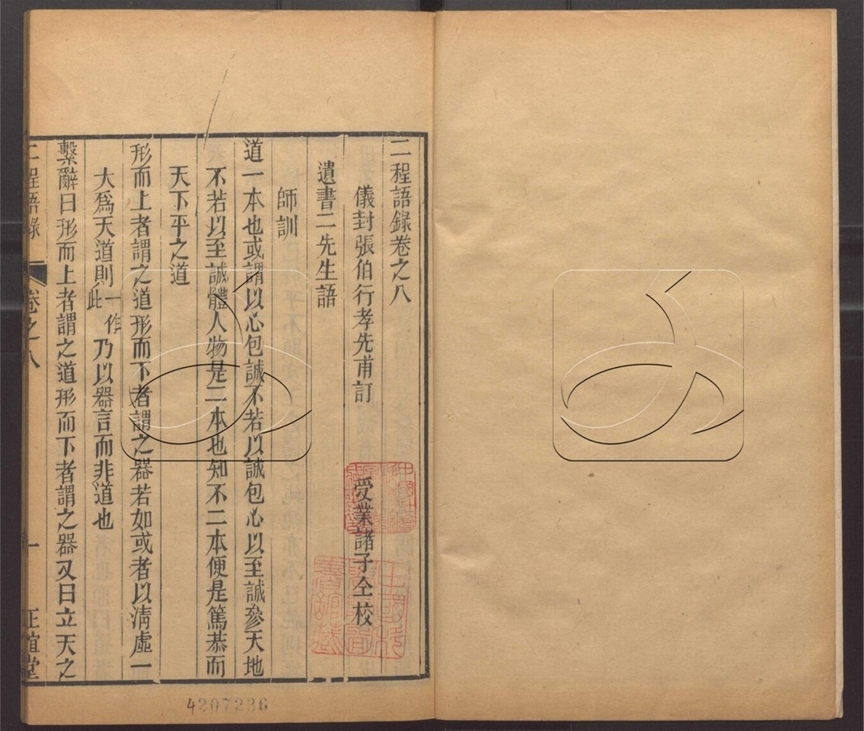 二程語錄卷之八
儀封張伯行孝先甫訂 受業諸子仝校
遺書二先生語
師訓
道一本也或謂以心包誠不若以誠包心以至誠參天地
不若以至誠體人物是二本也知不二本便是篤恭而
天下平之道
形而上者謂之道形而下者謂之器若如或者以清虛一
大爲天道則一作此乃以器言而非道也
繫辭曰形而上者謂之道形而下者謂之器又曰立天之
二程語錄 卷之八 一 正誼堂
4207236